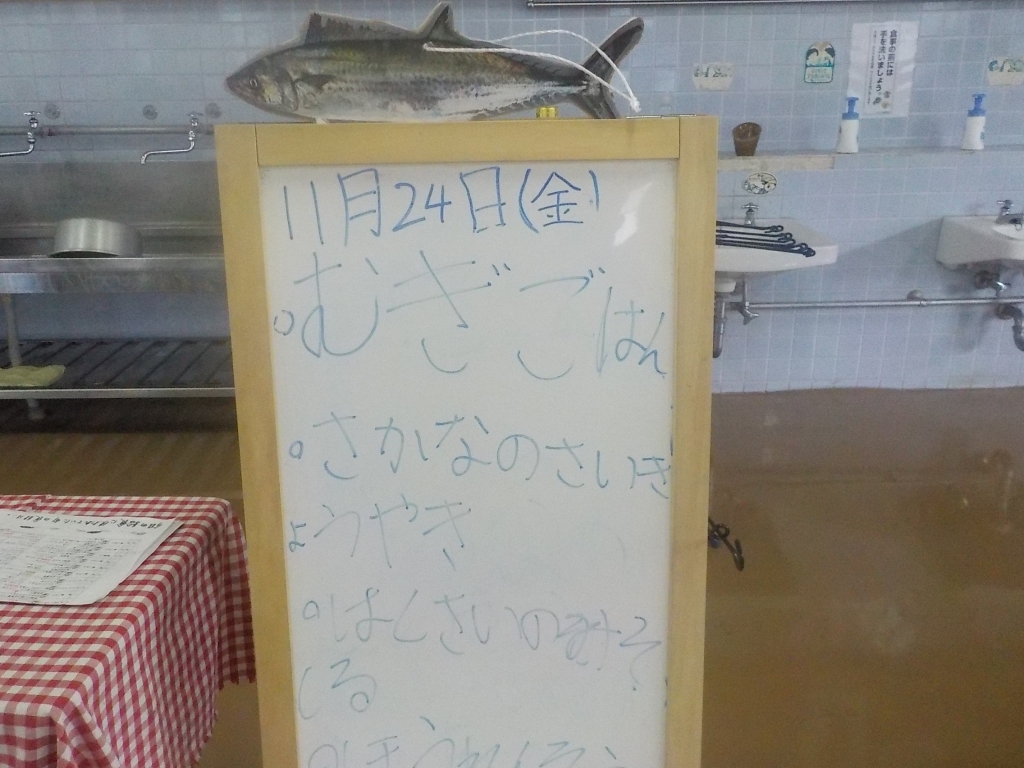 11月24日(金)
○むぎごはん
○さかなのさいき
ょうやき
○はくさいのみそ
しる
○ほうれんそう
食事の前には
手を洗いましょう。